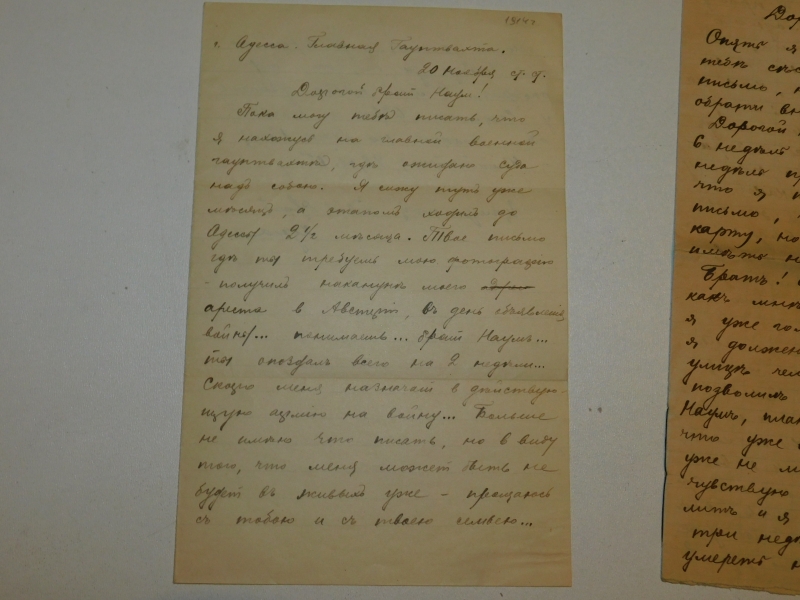 1914 г
г. Адесса. Главная Гауптвахта.
20 ноября ст. ст.
Дорогой брат Наум!
Пока могу тебѣ писать, что
я нахожусь на главной военной
гауптвахтѣ, гдѣ ожидаю суда
надъ собою. Я сижу тутъ уже
мѣсяцъ, а этапомъ ходилъ до
Адессы 2 1/2 мѣсяца. Твое письмо
гдѣ ты требуешь мою фотографию
получилъ наканунѣ моего
ареста в Австріи, въ день объявленія
войны... понимаешь... брат Наумъ...
ты опоздалъ всего на 2 недѣли...
Скоро меня назначат в дѣйствую-
щую армию на войну... Больше
не имѣю что писать, но в виду
того, что меня может быть не
будет въ живыхъ уже - прощаюсь
съ тобою и съ твоею семьею...
Дор
Опять я
тебѣ
письмо,
обрати вн
Дорогой
6 недѣль
недѣли пр
что я п
письмо,
карту, но
имѣть н
Братъ!
какъ мнѣ
я уже гол
я долженъ
улицѣ чем
позволить
Наумъ, пла
что уже
уже не м
чувствую
лить и я
три недѣ
умереть н